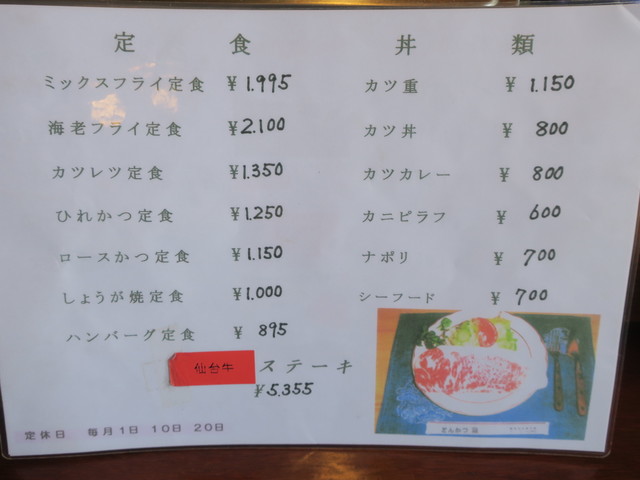 定食
ミックスフライ定食 ¥1.995
海老フライ定食 ¥2.100
カツレツ定食 ¥1.350
ひれかつ定食 ¥1.250
ロースかつ定食 ¥1.150
しょうが焼定食 ¥1.000
ハンバーグ定食 ¥895
仙台牛 ステーキ
¥5.355
丼類
カツ重 ¥1.150
カツ丼 ¥800
カツカレー ¥800
カニピラフ ¥600
ナポリ ¥700
シーフード ¥700
定休日 毎月1日 10日 20日